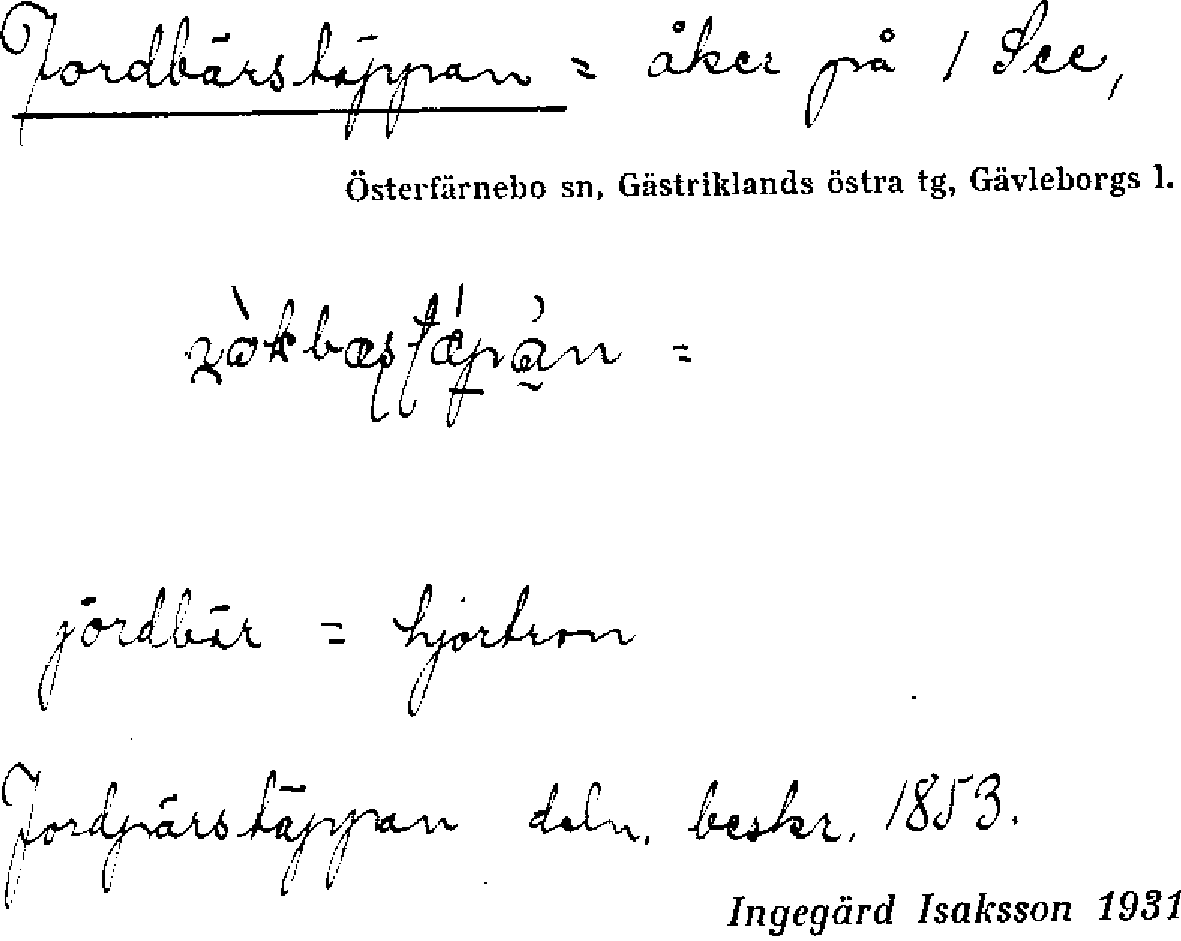 Jordbärstäppan = åker på 1 See,
Österfärnebo sn, Gästriklands östra tg, Gävleborgs l.
=
jordbär = hjortron
Jordpärstäppan deln. beskr. 1853.
Ingegärd Isaksson 1931